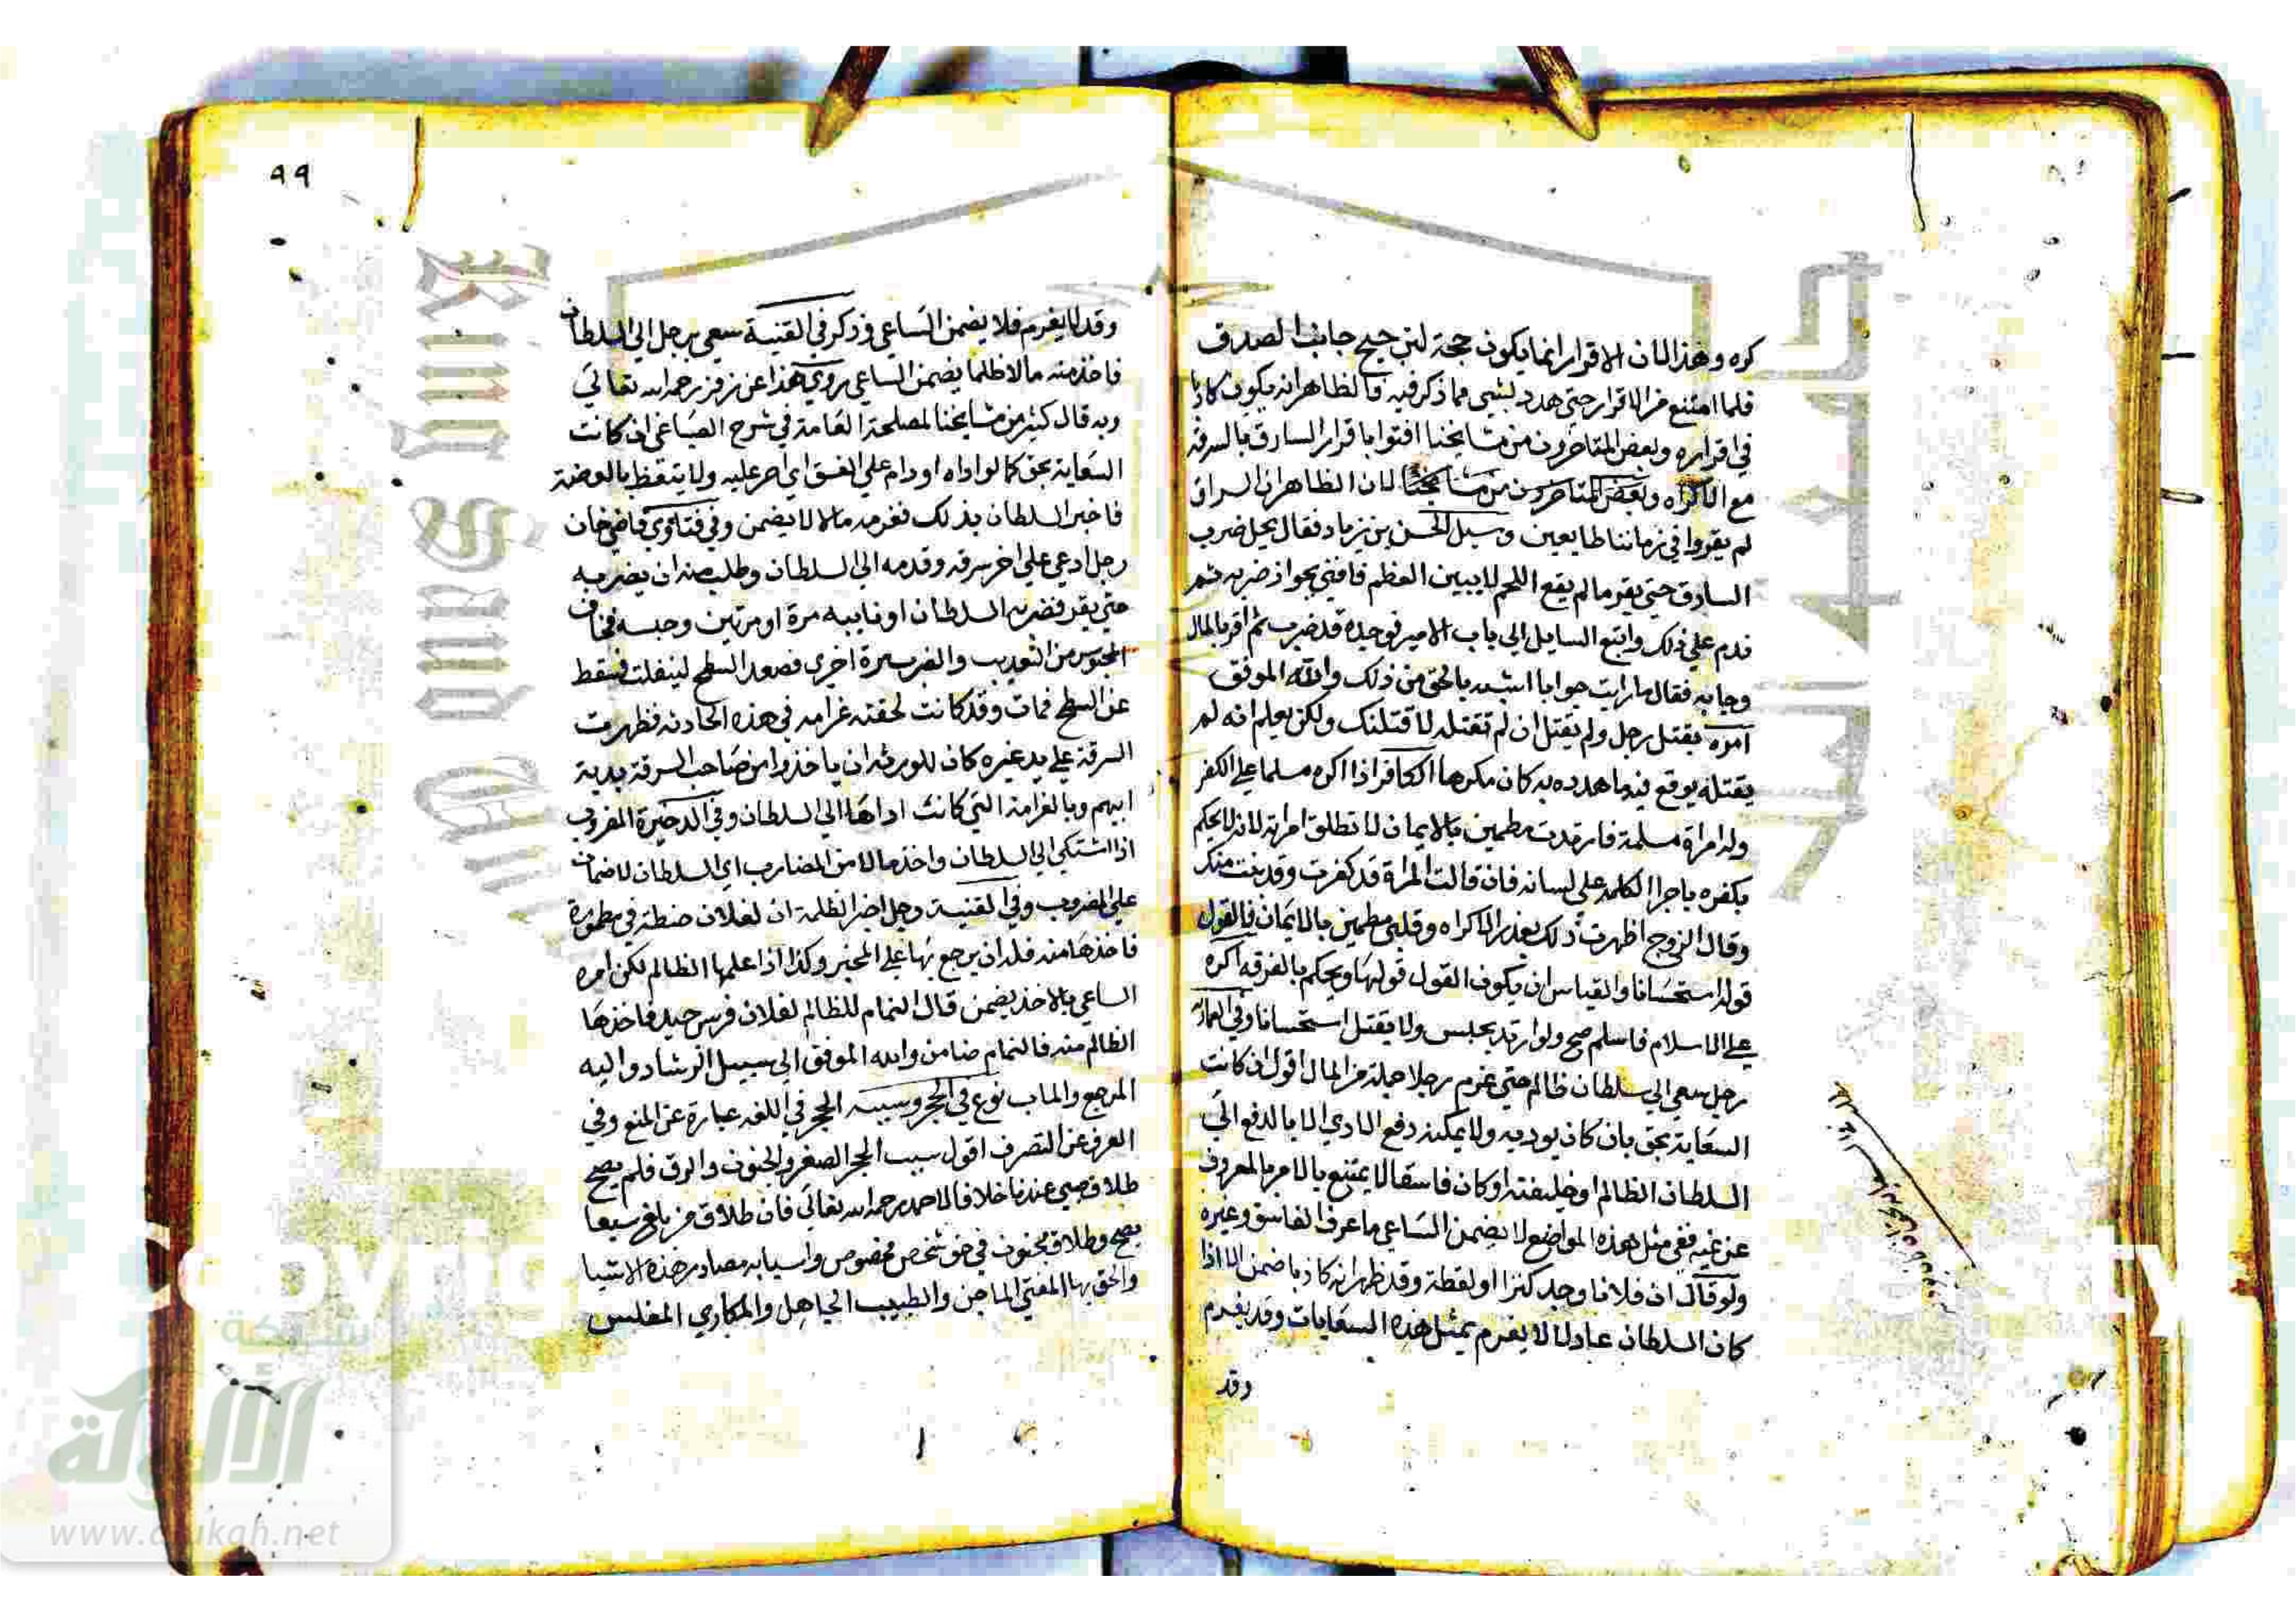 كره وهذا لان الاقرار انما يكون حجة لترجيح جانب الصدق
فلما امتنع من الاقرار حتي هدد بشيي مما ذكر فيه فالظاهر انه يكون كاذبا
في اقراره وبعض المتاخرون من مشايخنا افتوا باقرار السارق بالسرقة
مع الاكراه وبعض المتاخرون من مشايخنا لان الظاهر ان السراق
لم يقروا في زماننا طايعين وسيل الحسن بن زياد فقال يحل ضرب
السارق حتي يقر ما لم يقع اللحم لا يبين العظم فافتي بجواز ضربه ثم
ندم علي ذلك واتبع السايل الي باب الامير فوجده قد ضرب ثم اقر بالمال
وجا به فقال ما رايت جوابا اشبه بالحق من ذلك والله الموفق
امره بقتل رجل ولم يقتل ان لم تقتله لاقتلنك ولكن يعلم انه لم
يقتله يوقع فيه ما هدده به كان مكرها الكافر اذا اكره مسلما علي الكفر
وله امراة مسلمة فارتد مطمين بالايمان لا تطلق امراته لانه لا يحكم
بكفره باجرا الكلمة علي لسانه فان قالت المراة قد كفرت وقد بنت منك
وقال الزوج اظهرت ذلك بعذر الاكراه وقلبي مطمين بالايمان فالقول
قوله استحسانا والقياس ان يكون القول قولها ويحكم بالفرقه اكره
علي الاسلام فاسلم صح ولو ارتد يحبس ولا يقتل استحسانا وفي العمادية
رجل سعي الي سلطان ظالم حتي غرم رجلا جملة من المال اقول ان كانت
السعاية بحق بان كان يوديه ولا يمكنه دفع الاذي الا بالدفع الي
السلطان الظالم او خليفته او كان فاسقا لا يمتنع بالامر بالمعروف
عن غيه ففي مثل هذه المواضع لا يضمن الساعي ما عرف الفاسق وغيره
ولو قال ان فلانا وجد كنزا او لقطة وقد ظهر انه كاذبا ضمن الا اذا
كان السلطان عادلا لا يغرم بمثل هذه السعايات وقد يغرم
وقد
٩٩
وقد لا يغرم فلا يضمن الساعي وذكر في القنية سعي برجل الي السلطان
فاخذ منه مالا ظلما يضمن الساعي روي هذا عن زفر رحمه الله تعالي
وبه قال كثير من مشايخنا لمصلحة العامة في شرح الصباغي ان كانت
السعاية بحق كما لو اذاه او دام علي الفسق اي اصر عليه ولا يتعظ بالموعضة
فاخبر السلطان بذلك فغرمه مالا لا يضمن وفي فتاوي قاضيخان
رجل ادعي علي اخر سرقه وقدمه الي السلطان وطلب منه ان يضربه
حتي يقر فضربه السلطان او نايبه مرة او مرتين وحبسه فخاف
المحبوس من التعذيب والضرب مرة اخري فصعد السطح لينفلت فسقط
عن السطح فمات وقد كانت لحقته غرامه في هذه الحادثه فظهرت
السرقة علي يد غيره كان للورثة ان ياخذوا من صاحب السرقة بدية
ابيهم وبالغرامة التي كانت اداها الي السلطان وفي الدخيرة المضروب
اذا اشتكي الي السلطان واخذ مالا من المضارب اي السلطان لا ضمان
علي المضروب وفي القنية رجل اخبر الظلمة ان لفلان حنطة في مطمورة
فاخذها منه فله ان يرجع بها علي المخبر وكذا اذا علمها الظالم لكن امره
الساعي بالاخذ يضمن قال النمام للظالم لفلان فرس جيد فاخذها
الظالم منه فالنمام ضامن والله الموفق الي سبيل الرشاد واليه
المرجع والماب نوع في الحجر وسببه الحجر في اللغه عبارة عن المنع وفي
العرف عن التصرف اقول سبب الحجر الصغر والجنون والرق فلم يصح
طلاق صبي عندنا خلافا لاحمد رحمه الله تعالي فان طلاق من بلغ سبعا
يصح وطلاق مجنون في حق شخص مخصوص واسبابه مصادر هذه الاشيا
والحق بها المفتي الماجن والطبيب الجاهل والمكاري المفلس
شبكة
الألوكة
www.alukah.net